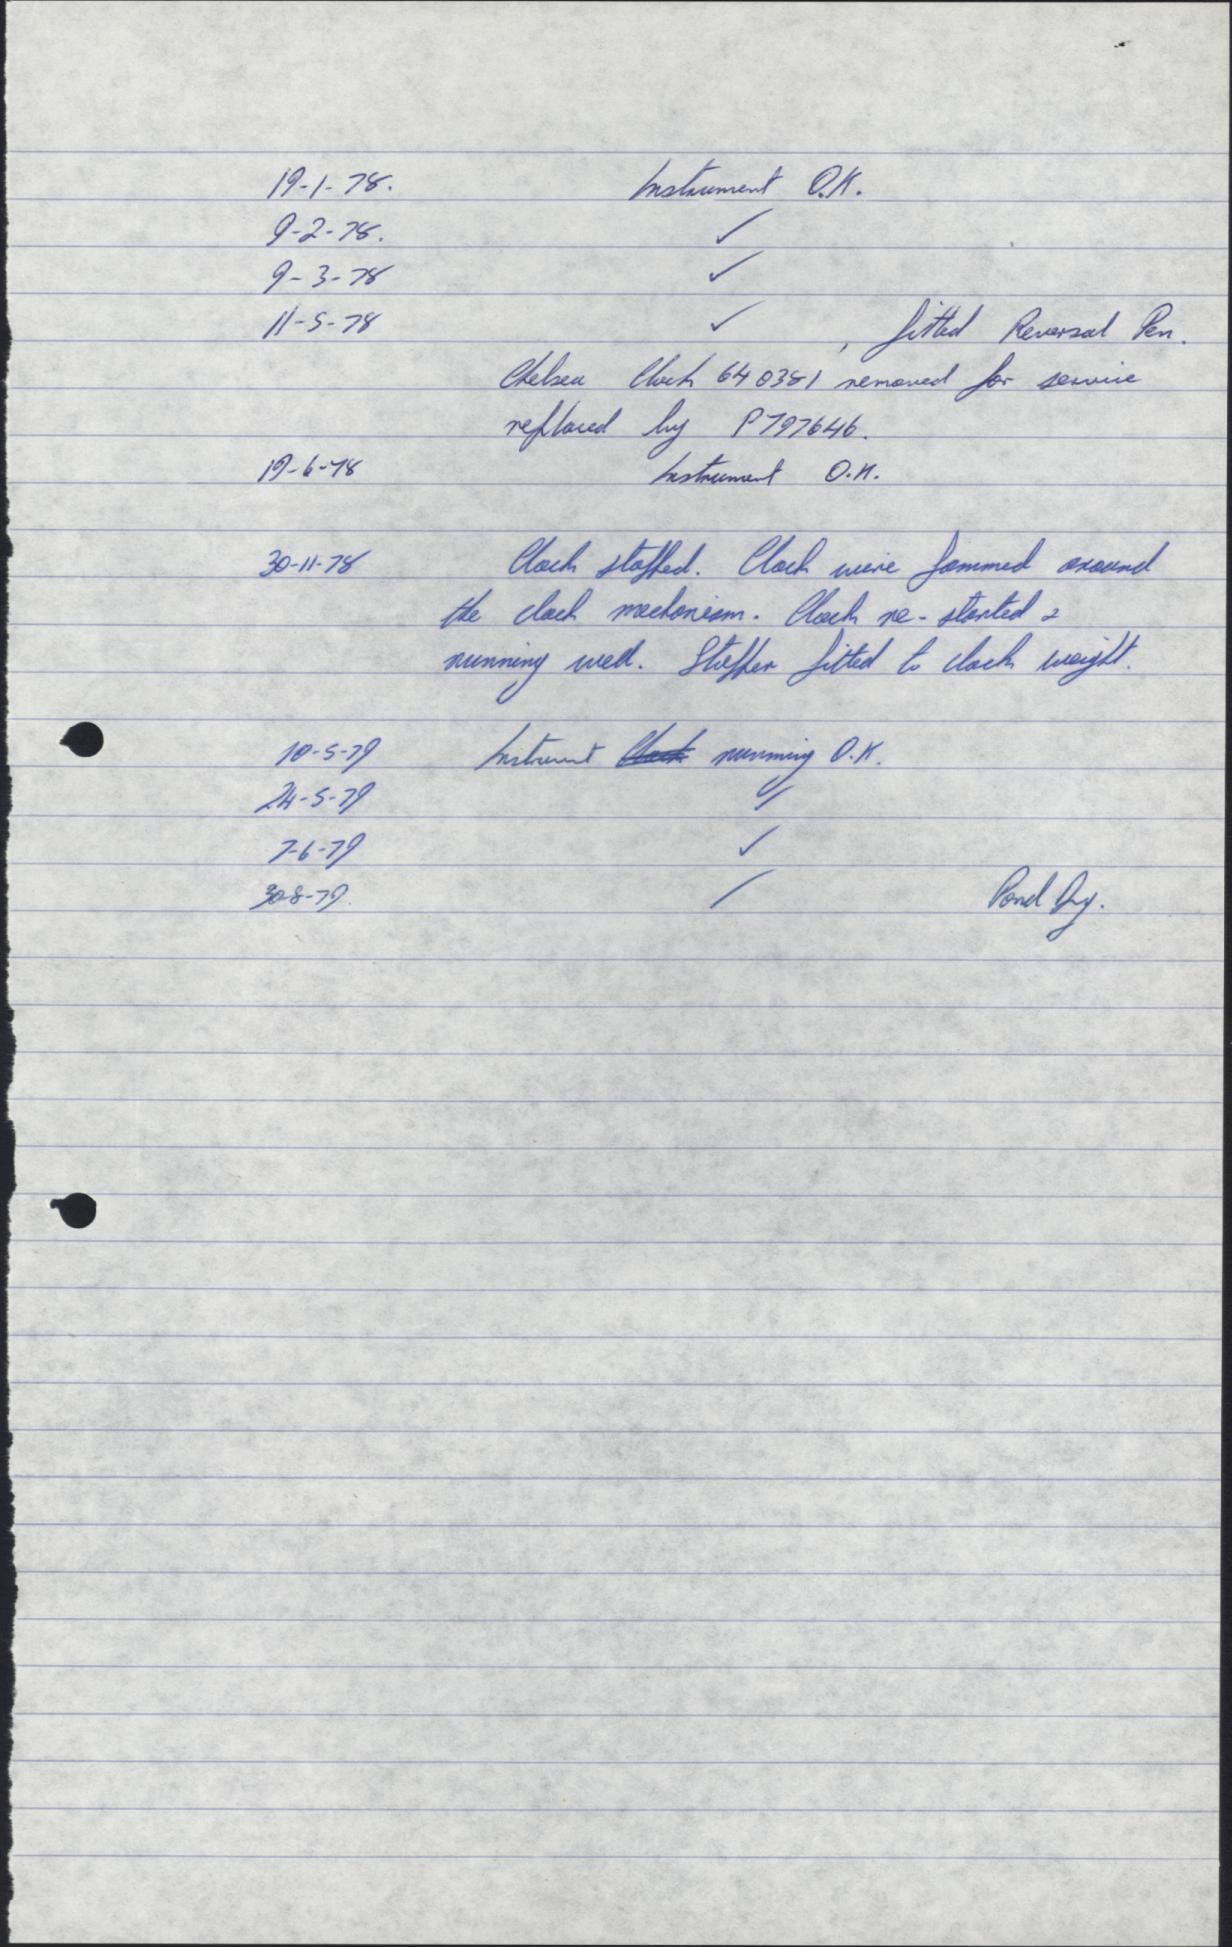 19-1-78. Instrument O.K.
9-2-78. ✓
9-3-78 ✓
11-5-78 ✓, fitted Reversal Pen.
Chelsea Clock 640381 removed for service
replaced by P797646.
19-6-78 Instrument O.K.
30-11-78 Clock stopped. Clock wire jammed around
the clock mechanism. Clock re-started &
running well. Stopper fitted to clock weight.
10-5-79 Instrument Clock running O.K.
24-5-79 ✓
7-6-79 ✓
30-8-79. ✓ Pond Dry.